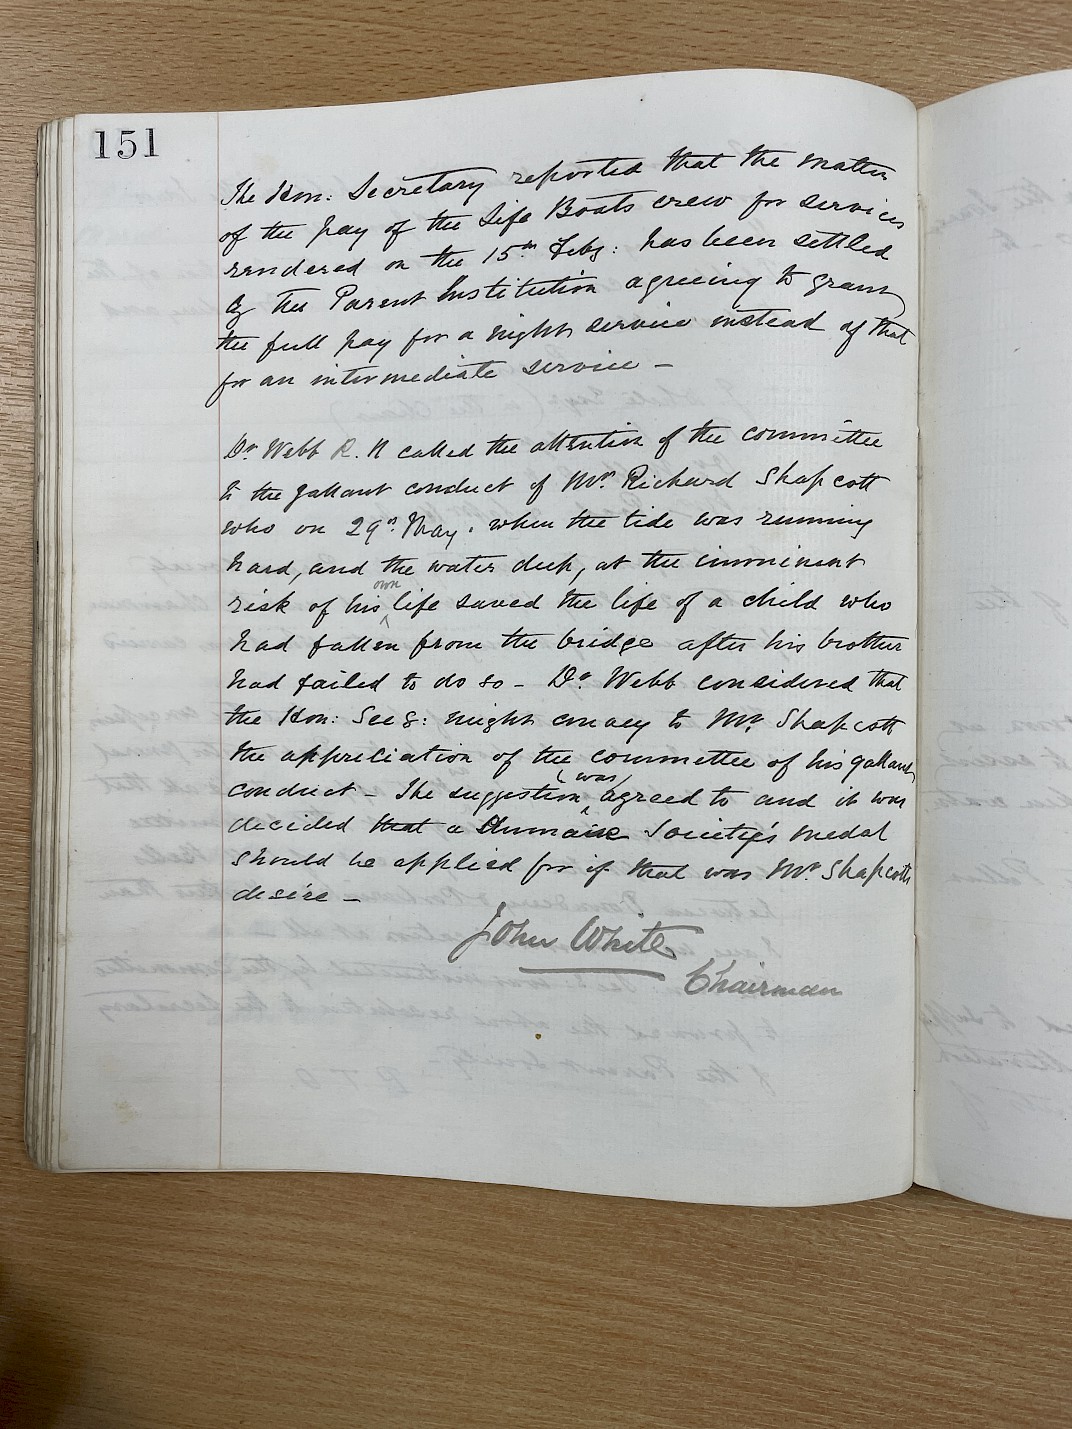 151
The Hon: Secretary reported that the matter
of the pay of the Life Boats crew for services
rendered on the 15th Feby: has been settled
by the Parent Institution agreeing to grant
the full pay for a night service instead of that
for an intermediate service –
Dr Webb R. N called the attention of the committee
to the gallant conduct of Mr. Richard Shapcott
who on 29th May. when the tide was running
hard, and the water deep, at the imminent
risk of his own life saved the life of a child who
had fallen from the bridge after his brother
had failed to do so – Dr. Webb considered that
the Hon: Secy: might convey to Mr. Shapcott
the appreciation of the committee of his gallant
conduct – The suggestion was agreed to and it was
decided that a Humane Society's medal
should be applied for if that was Mr. Shapcotts
desire –
John White
Chairman